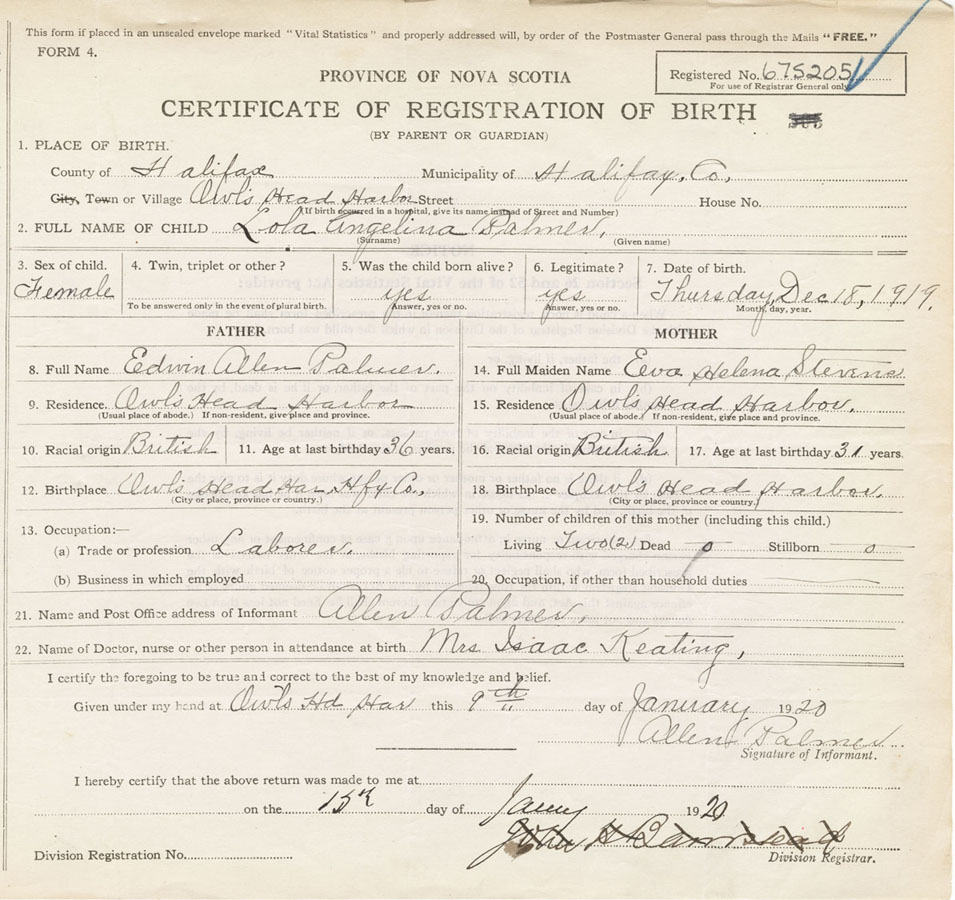 This form if placed in an unsealed envelope marked "Vital Statistics" and properly addressed will, by order of the Postmaster General pass through the Mails "FREE."
FORM 4.
PROVINCE OF NOVA SCOTIA
Registered No. 675205
For use of Registrar General only
CERTIFICATE OF REGISTRATION OF BIRTH
(BY PARENT OR GUARDIAN)
1. PLACE OF BIRTH.
County of Halifax Municipality of Halifax, Co,
City, Town or Village Owl's Head Harbor Street House No.
(If birth occurred in a hospital, give its name instead of Street and Number)
2. FULL NAME OF CHILD Lola Angelina Palmer,
(Surname) (Given name)
3. Sex of child. 4. Twin, triplet or other? 5. Was the child born alive? 6. Legitimate? 7. Date of birth.
Female yes yes Thursday, Dec 18, 1919.
To be answered only in the event of plural birth. Answer, yes or no. Answer, yes or no. Month, day, year.
FATHER MOTHER
8. Full Name Edwin Allen Palmer. 14. Full Maiden Name Eva Helena Stevens
9. Residence. Owl's Head Harbor 15. Residence Owl's Head Harbor.
(Usual place of abode.) If non-resident, give place and province. (Usual place of abode.) If non-resident, give place and province.
10. Racial origin British 11. Age at last birthday 36 years. 16. Racial origin British 17. Age at last birthday 31 years.
12. Birthplace Owl's Head Har, Hfx Co., 18. Birthplace Owl's Head Harbor.
(City or place, province or country.) (City or place, province or country.)
13. Occupation:— 19. Number of children of this mother (including this child.)
(a) Trade or profession Laborer. Living Two (2) Dead 0 Stillborn 0
(b) Business in which employed 20. Occupation, if other than household duties
21. Name and Post Office address of Informant Allen Palmer,
22. Name of Doctor, nurse or other person in attendance at birth Mrs Isaac Keating,
I certify the foregoing to be true and correct to the best of my knowledge and belief.
Given under my hand at Owl's Hd Har this 9th day of Janurary 1920
Allen Palmer
Signature of Informant.
I hereby certify that the above return was made to me at
on the 15th day of Jany 1920
John H
Division Registration No. Division Registrar.